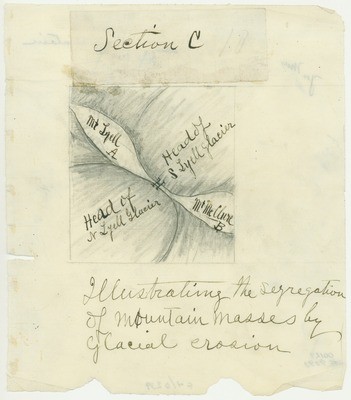 Section C
Mt Lyell
A
Head of
S Lyell Glacier
Head of
N Lyell Glacier
Mt McClure
B
Illustrating the segregation
of mountain masses by
Glacial erosion